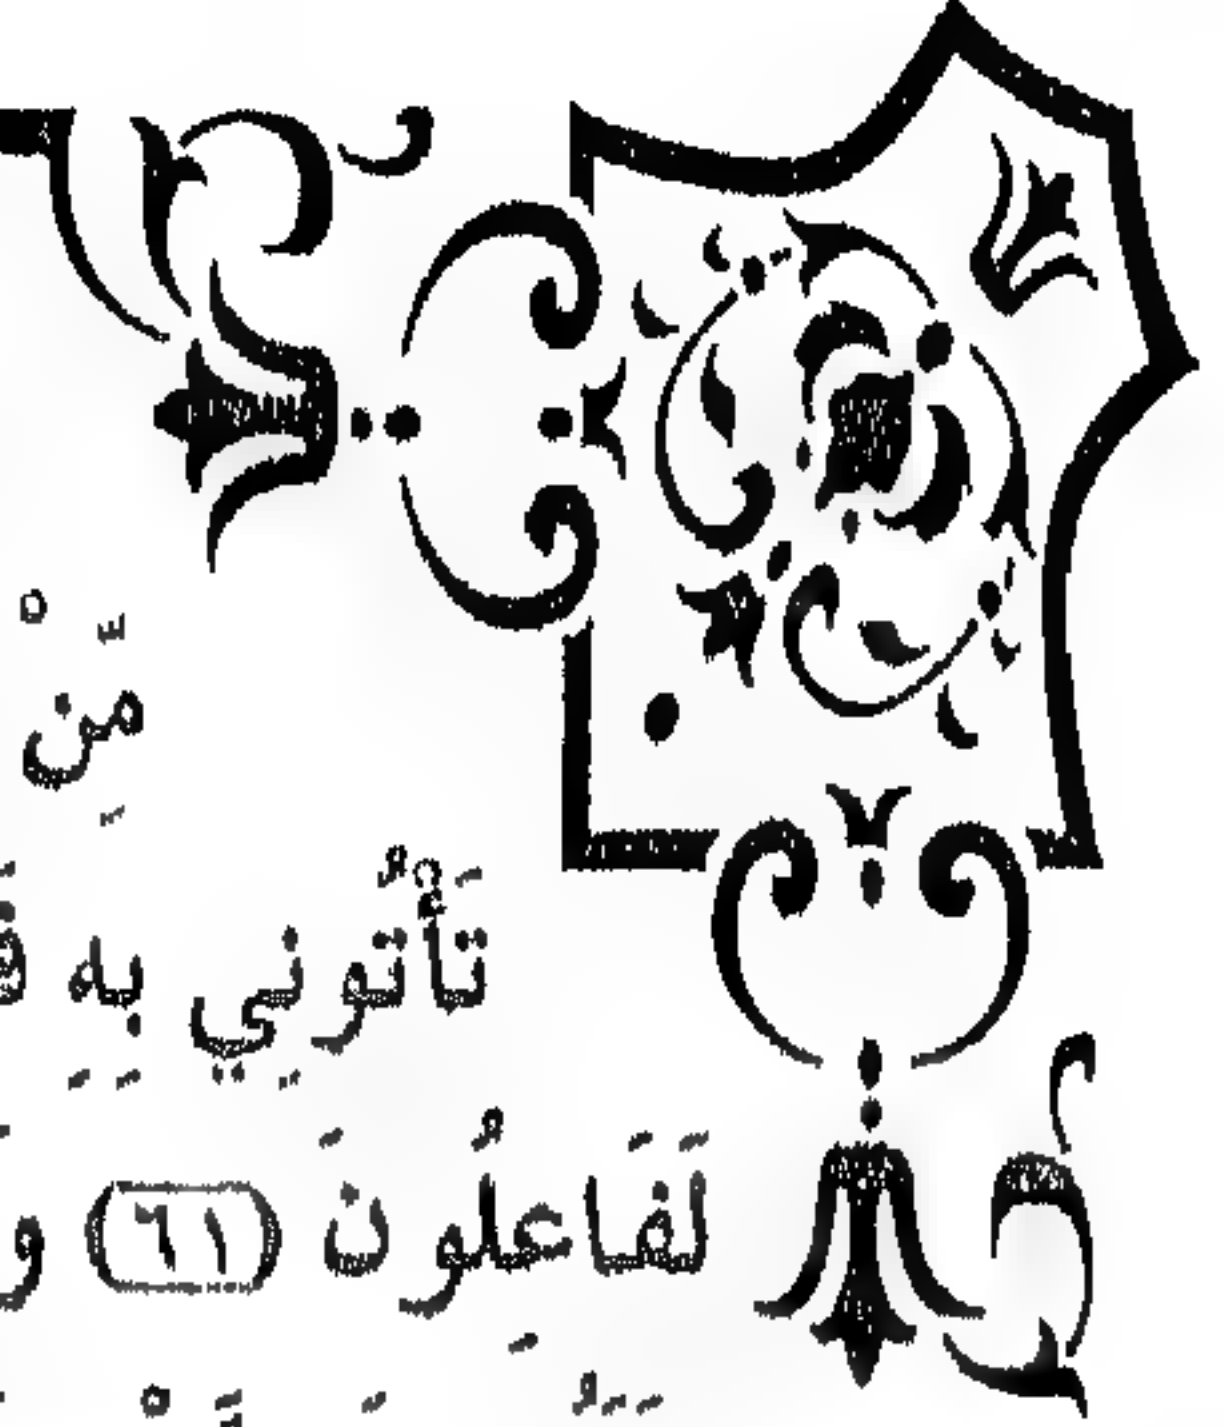 مِّن
تَأْتُونِي بِهِ
لَفَاعِلُونَ (٦١)